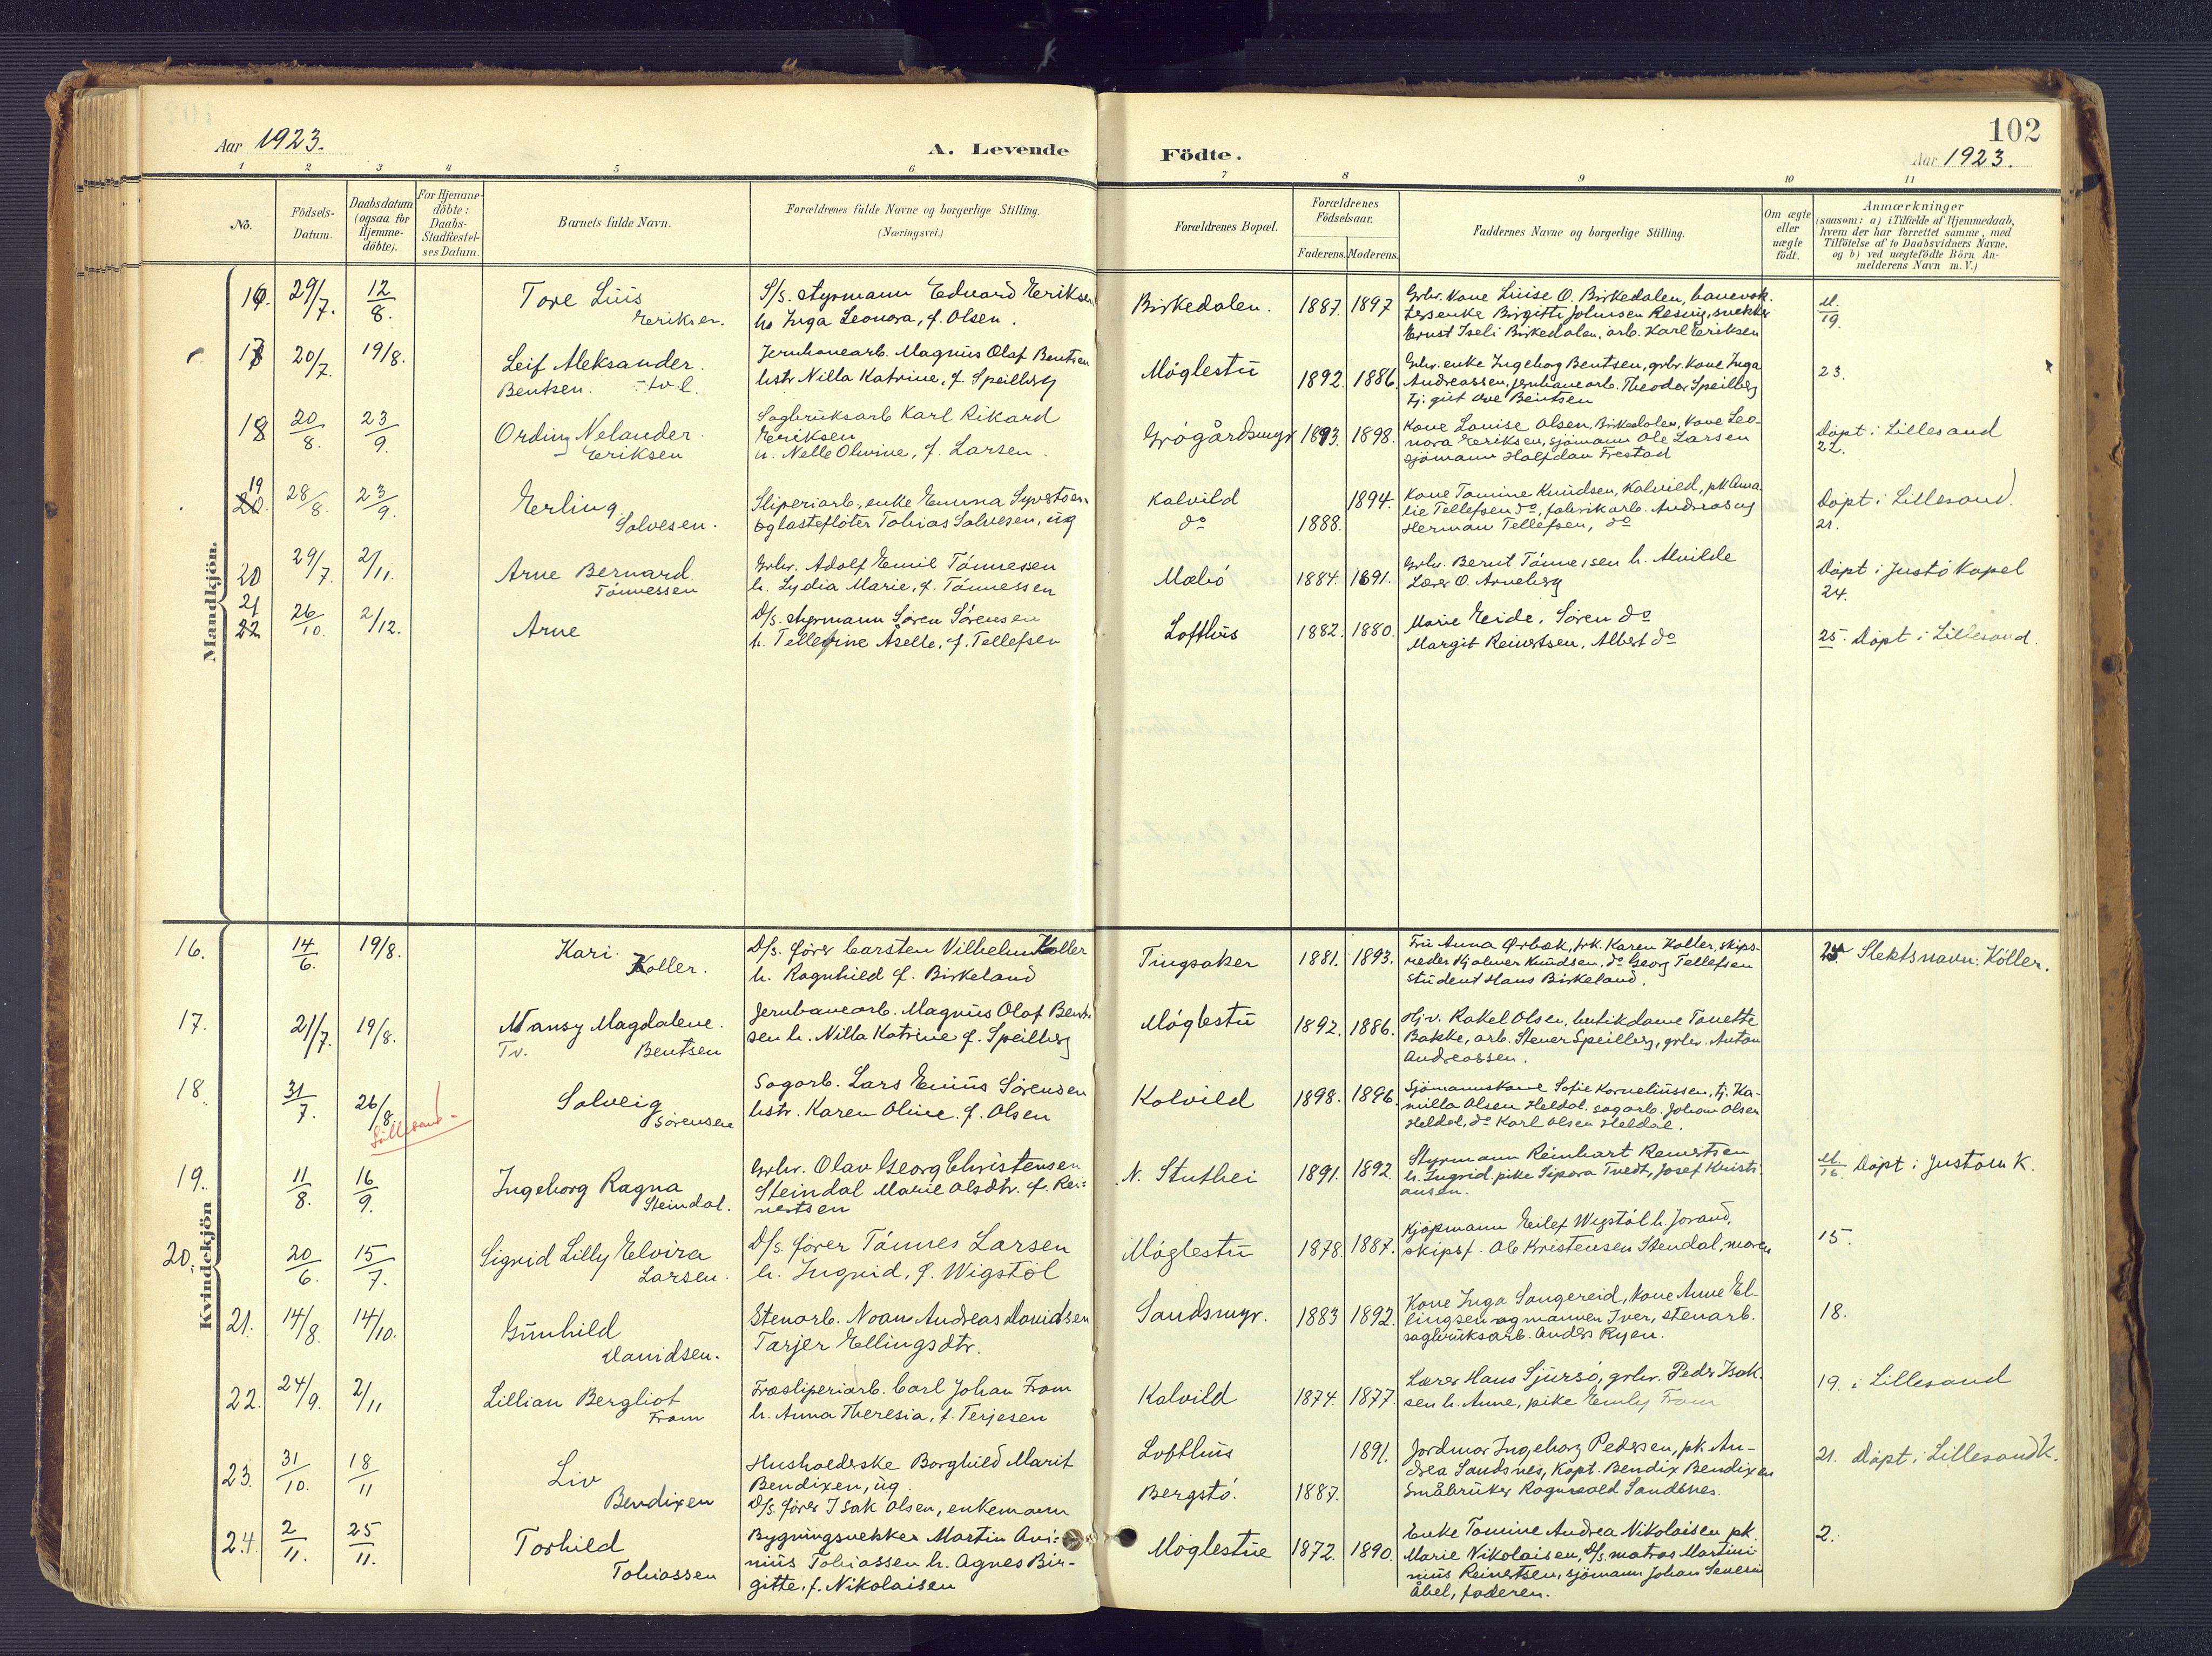 Aar 1923.
A. Levende
Födte.
102
Aar 1923.
1 2 3 4 5 6 7 8 9 10 11
No.
Födsels-
Datum.
Daabsdatum
(ogsaa for
Hjemme-
döbte).
For Hjemme-
döbte:
Daabs-
Stadfæstel-
ses Datum.
Barnets fulde Navn.
Forældrenes fulde Navne og borgerlige Stilling.
(Næringsvei.)
Forældrenes Bopæl.
Forældrenes
Födselsaar.
Faderens. Moderens.
Faddernes Navne og borgerlige Stilling.
Om ægte
eller
uægte
födt.
Anmærkninger
(saasom: a) i Tilfælde af Hjemmedaab,
hvem der har forrettet samme, med
Tilföielse af to Daabsvidners Navne,
og b) ved uægtefödte Börn An-
melderens Navn m.V.)
Mandkjön.
16. 29/7. 12/8.
Tore Luis
Eeriksen.
S/s. styrmann Eduard Eeriksen
hs Inga Leonora, f. Olsen.
Birkedalen. 1887. 1897
Grbr. kone Luise O. Birkedalen, banevok-
tersenke Birgitte Johnsen Resvig, snekker
Ernst Iseli Birkedalen, arb. Karl Eeriksen
19.
17 20/7. 19/8.
Leif Aleksander.
Bentsen. tvl.
Jernbanearb. Magnus Olaf Bentsen
hstr Nilla Katrine, f. Speilberg
Møglestu 1892. 1886.
Grbr. enke Ingeborg Bentsen, grbr. kone Inga
Andreassen, jernbanearb. Theodor Speilberg
tj. gut Ove Bentsen
23.
18 20/8. 23/9.
Ording Nelander
Eeriksen
Sagbruksarb Karl Rikard
Eeriksen
h. Nelle Olivine, f. Larsen.
Grøgårdsmyr 1893. 1898.
Kone Louise Olsen, Birkedalen, kone Leo-
nora Eeriksen, sjømann Ole Larsen
sjømann Halfdan Frestad
Døpt i Lillesand
22.
19
20. 28/8. 23/9.
Eerling
Salvesen.
Sliperiarb., enke Emma Syvertsen
og lasteflöter Tobias Salvesen, ug
Kalvild 1894.
do 1888.
Kone Tomine Knudsen, Kalvild, pk Ama-
lie Tellefsen do, fabrikarb. Andreas og
Herman Tellefsen, do
Døpt i Lillesand.
21.
20 29/7. 2/11.
Arne Bernard
Tønnessen
Grbr. Adolf Emil Tønnessen
h. Lydia Marie, f. Tønnessen
Mæbø 1884. 1891.
Grbr. Bernt Tønnessen h. Alvilde
Lærer O. Arneberg
Døpt i Justø kapel
24.
21
22 26/10. 2/12.
Arne
D/s. styrmann Søren Sørensen
h. Tellefine Åselle, f. Tellefsen
Lofthus 1882. 1880.
Marie Eide, Søren do
Margit Reinertsen, Albert do
25. Døpt i Lillesand.
Kvindekjön
16. 14/6. 19/8.
Kari
Koller.
D/s. fører Carsten Vilhelm Koller
h. Ragnhild f. Birkeland
Tingsaker 1881. 1893.
Fru Anna Ørbæk, frk. Karen Koller, skips-
reder Hjalmer Knudsen, do Georg Tellefsen
student Hans Birkeland.
Slektsnavn: Köller.
17. 21/7. 19/8.
Nansy Magdalene.
Tv. Bentsen
Jernbanearb. Magnus Olaf Bent-
sen h. Nilla Katrine f. Speilberg
Møglestu 1892. 1886.
Hjv. Rakel Olsen, butikdame Tanette
Bakke, arb. Stener Speilberg, grbr. Anton
Andreassen.
18. 31/7. 26/8.
Lillesand
Solveig
Sørensen
Sagarb. Lars Emius Sørensen
hstr. Karen Oline f. Olsen
Kalvild 1898. 1896.
Sjömannskone Sofie Korneliussen, tj. Ka-
milla Olsen Heldal, sagarb. Johan Olsen
Heldal, do Karl Olsen Heldal.
19. 11/8. 16/9.
Ingeborg Ragna
Steindal.
Grbr. Olav Georg Christensen
Steindal Marie Olsdtr. f. Rei-
nertsen
N. Stuthei 1891. 1892.
Styrmann Reinhart Reinertsen
h. Ingrid, pike Sipora Tvedt, Josef Kristi-
ansen.
16. Døpt i Justøen K.
20. 20/6. 15/7.
Sigrid Lilly Elvira
Larsen.
D/s. fører Tønnes Larsen
h. Ingrid, f. Wigstøl
Møglestu 1878. 1887.
Kjøpmann Eilef Wigstøl h. Jorand,
skipsf. Ole Kristensen Stendal, moren
15.
21. 14/8. 14/10.
Gunhild
Davidsen.
Stenarb. Noam Andreas Davidsen
Tarjer Ellingsdtr.
Sandsmyr. 1883 1892.
Kone Inga Sangereid, kone Anne El-
lingsen og mannen Iver, stenarb.
sagbruksarb. Anders Ryen.
18.
22. 24/9. 2/11
Lillian Bergliot
From
Træsliperiarb. Carl Johan From
h. Anna Theresia, f. Terjesen
Kalvild 1874. 1877.
Lærer Hans Sjursø, grbr. Peder Isak-
sen h. Anne, pike Emily From
19. i Lillesand
23. 31/10. 18/11
Liv
Bendixen
Husholderske Borghild Marit
Bendixen, ug.
D/s. fører Isak Olsen, enkemann
Lofthus 1891.
Bergstø. 1887.
Jordmor Ingeborg Pedersen, pk. An-
drea Sandsnes, kapt. Bendix Bendixen
Småbruker Ragnvald Sandsnes.
21. Døpt i Lillesand K.
24. 2/11. 25/11.
Torhild
Tobiassen
Bygningsnekker Martin Avi-
nius Tobiassen h. Agnes Bir-
gitte, f. Nikolaisen
Møglestue 1872. 1890.
Enke Tomine Andrea Nikolaisen pk.
Marie Nikolaisen, D/s. matros Martini-
nius Reinertsen, sjömann Johan Severin
Åbel, faderen.
2.